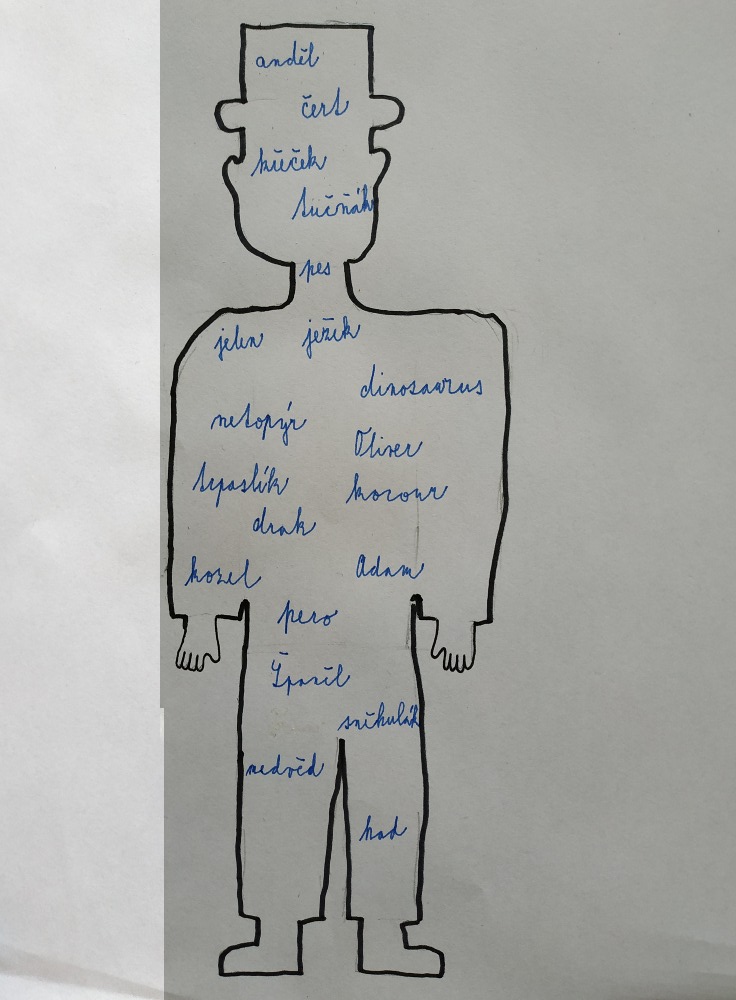 anděl
čert
kůček
tučňák
pes
jelen ježek
dinosaurus
netopýr
Oliver
trpaslík
kocour
drak
kozel
Adam
pero
sněhulák
medvěd
had